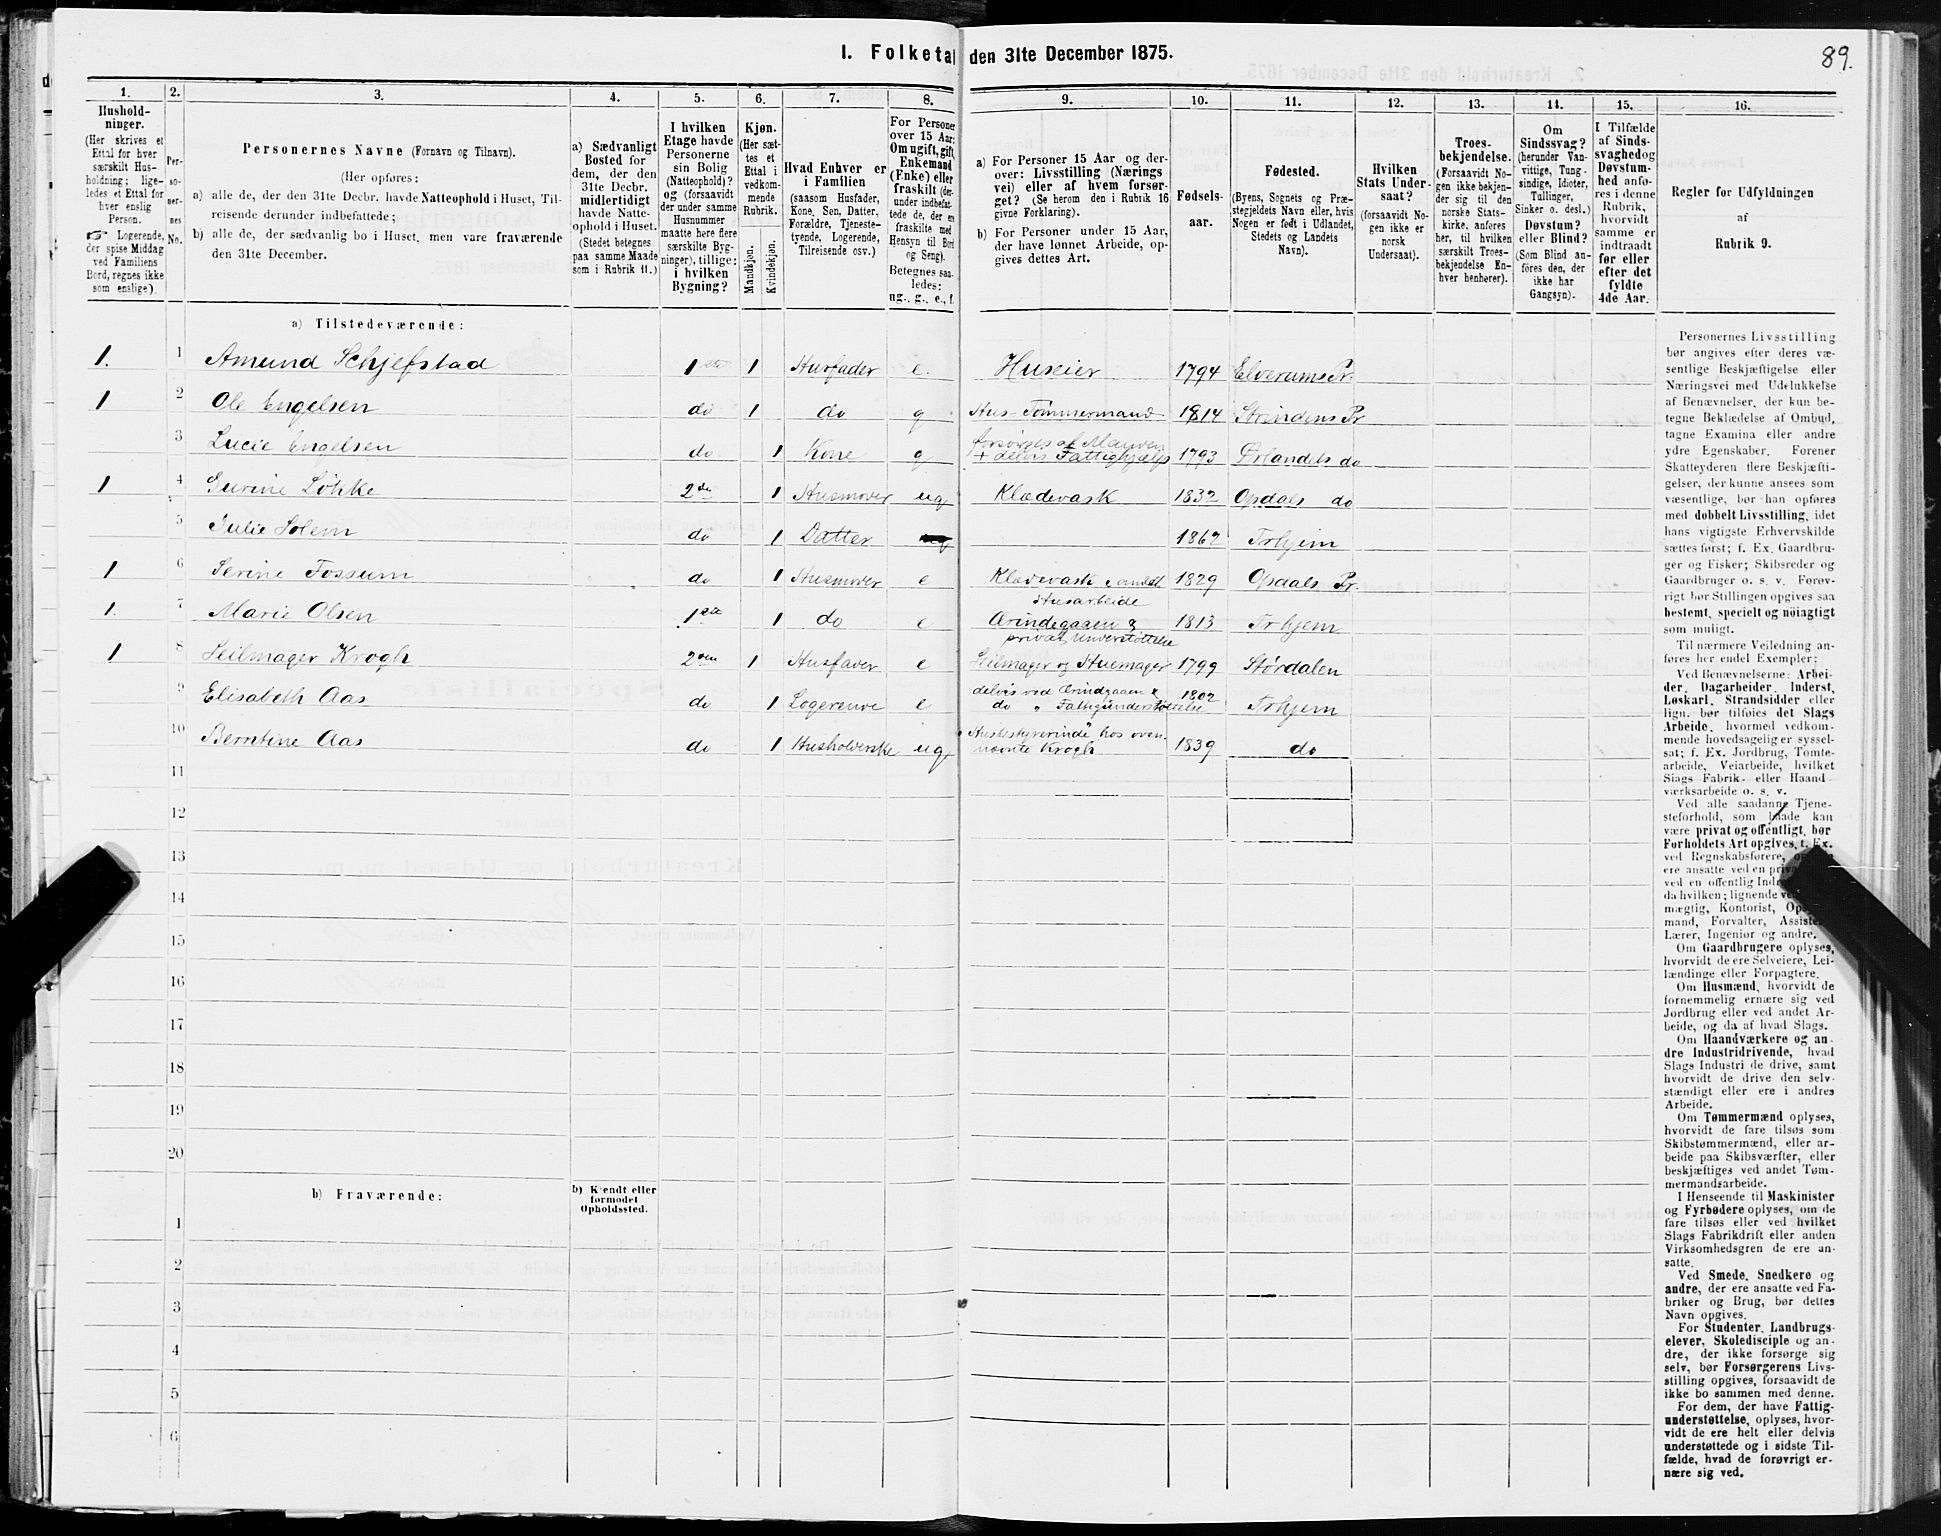 I. Folketal den 31te December 1875.
89.
1. 2. 3. 4. 5. 6. 7. 8. 9. 10. 11. 12. 13. 14. 15. 16.
Hushold-
ninger.
(Her skrives et
Ettal for hver
særskilt Hus-
holdning; lige-
ledes et Ettal for
hver enslig
Person.
☞ Logerende,
der spise Middag
ved Familiens
Bord, regnes ikke
som enslige).
Per-
so-
ner-
nes
No.
Personernes Navne (Fornavn og Tilnavn).
(Her opføres:
a) alle de, der den 31te Decbr. havde Natteophold i Huset, Til-
reisende derunder indbefattede;
b) alle de, der sædvanlig bo i Huset, men vare fraværende
den 31te December.
a) Sædvanligt
Bosted for
dem, der den
31te Decbr.
midlertidigt
havde Natte-
ophold i Huset.
(Stedet betegnes
paa samme Maade
som i Rubrik 11.)
I hvilken
Etage havde
Personerne
sin Bolig
(Natteophold)?
og (forsaavidt
der under samme
Husnummer
maatte være flere
særskilte Byg-
ninger), tillige:
i hvilken
Bygning?
Kjøn.
(Her sæt-
tes et
Ettal i
vedkom-
mende
Rubrik.
Mandkjøn.
Kvindekjøn.
Hvad Enhver er
i Familien
(saasom Husfader,
Kone, Søn, Datter,
Forældre, Tjeneste-
tyende, Logerende,
Tilreisende osv.)
For Personer
over 15 Aar:
Om ugift, gift,
Enkemand
(Enke) eller
fraskilt (der-
under indbefat-
tede de, der ere
fraskilte med
Hensyn til Bord
og Seng).
Betegnes saa-
ledes:
ug., g., e., f.
a) For Personer 15 Aar og der-
over: Livsstilling (Nærings
vei) eller af hvem forsør-
get? (Se herom den i Rubrik 16
givne Forklaring).
b) For Personer under 15 Aar,
der have lønnet Arbeide, op-
gives dettes Art.
Fødsels-
aar.
Fødested.
(Byens, Sognets og Præ-
stegjeldets Navn eller, hvis
Nogen er født i Udlandet,
Stedets og Landets
Navn).
Hvilken
Stats Under-
saat?
(forsaavidt No-
gen ikke er
norsk
Undersaat).
Troes-
bekjendelse.
(Forsaavidt No-
gen ikke bekjen-
der sig til den
norske Stats-
kirke, anføres
her, til hvilken
særskilt Troes-
bekjendelse En-
hver henhører).
Om
Sindssvag?
(herunder Van-
vittige, Tung-
sindige, Idioter,
Tullinger,
Sinker o. desl.)
Døvstum?
eller Blind?
(Som Blind an-
føres den, der
ikke har
Gangsyn).
I Tilfælde
af Sinds-
svaghed og
Døvstum-
hed anfø-
res i denne
Rubrik,
hvorvidt
samme er
indtraadt
før eller
efter det
fyldte
4de Aar.
Regler for Udfyldningen
af
Rubrik 9.
a) Tilstedeværende:
1. 1 Amund Schjefstad 1ste 1 Husfader e. Huseier 1794 Elverums Pr.
1 2 Ole Engelsen do 1 do g Hus-Tømmermand 1814 Strindens Pr
3 Lucie Engelsen do 1 Kone g forsørges af Manden
+ delvis Fattighjælp 1793 Ørlandets do
1 4 Gurine Løkke 2de 1 Husmoder ug Klædevask 1832 Opdals do
5 Julie Solem do 1 Datter 1862 Trhjem
1 6 Serine Fossum do 1 Husmoder e Klædevask & andet
Husarbeide 1829 Opdals Pr.
1. 7 Marie Olsen 1ste 1 do e Ærindegaaen &
privat Understøttelse 1813 Trhjem
1 8 Seilmager Krogh 2den 1 Husfader e Seilmager og Huemager 1799 Størdalen
9 Elisabeth Aas do 1 Logerende e delvis ved Ærindgaaen &
do " Fattigunderstøttelse 1802 Trhjem
10 Berntine Aas do 1 Husholderske ug Husbestyrerinde hos oven-
nævnte Krogh 1839 do
11
12
13
14
15
16
17
18
19
20
b) Fraværende:
b) Kjendt eller
formodet
Opholdssted.
1
2
3
4
5
6
Personernes Livsstilling
bør angives efter deres væ-
sentlige Beskjæftigelse eller
Næringsvei med Udelukkelse
af Benævnelser, der kun be-
tegne Beklædelse af Ombud,
tagne Examina eller andre
ydre Egenskaber. Forener
Skatteyderen flere Beskjæfti-
gelser, der kunne ansees som
væsentlige, bør han opføres
med dobbelt Livsstilling, idet
hans vigtigste Erhvervskilde
sættes først; f. Ex. Gaardbru-
ger og Fisker; Skibsreder og
Gaardbruger o. s. v. Forøv-
rigt bør Stillingen opgives saa
bestemt, specielt og nøiagtigt
som muligt.
Til nærmere Veiledning an-
føres her endel Exempler:
Ved Benævnelserne: Arbei-
der, Dagarbeider, Inderst,
Løskarl, Strandsidder eller
lign. bør tilføies det Slags
Arbeide, hvormed vedkom-
mende hovedsagelig er syssel-
sat; f. Ex. Jordbrug, Tomte-
arbeide, Veiarbeide, hvilket
Slags Fabrik- eller Haand
værksarbeide o. s. v.
Ved alle saadanne Tjene-
steforhold, som baade kan
være privat og offentligt, bør
Forholdets Art opgives, t. Ex.
ved Regnskabsførere,
ere ansatte ved en
ved en offentlig
da hvilken; lignende
mægtig, Kontorist,
mand, Forvalter,
Lærer, Ingeniør og andre.
Om Gaardbrugere oplyses,
hvorvidt de ere Selveiere, Lei-
lændinge eller Forpagtere.
Om Husmænd, hvorvidt de
fornemmelig ernære sig ved
Jordbrug eller ved andet Ar-
beide, og da af hvad Slags.
Om Haandværkere og an-
dre Industridrivende, hvad
Slags Industri de drive, samt
hvorvidt de drive den selv-
stændigt eller ere i andres
Arbeide.
Om Tømmermænd oplyses,
hvorvidt de fare tilsøs som
Skibstømmermænd, eller ar-
beide paa Skibsværfter, eller
beskjæftiges ved andet Tøm-
mermandsarbeide.
I Henseende til Maskinister
og Fyrbødere oplyses, om de
fare tilsøs eller ved hvilket
Slags Fabrikdrift eller anden
Virksomhedsgren de ere an-
satte.
Ved Smede, Snedkere og
andre, der ere ansatte ved Fa-
briker og Brug, bør dettes
Navn opgives.
For Studenter, Landbrugs-
elever, Skoledisciple og an-
dre, der ikke forsørge sig
selv, bør Forsørgerens Livs-
stilling opgives, forsaavidt de
ikke bo sammen med denne.
For dem, der have Fattig-
understøttelse, oplyses, hvor-
vidt de ere helt eller delvis
understøttede og i sidste Til-
fælde, hvad de forøvrigt er-
nære sig ved.